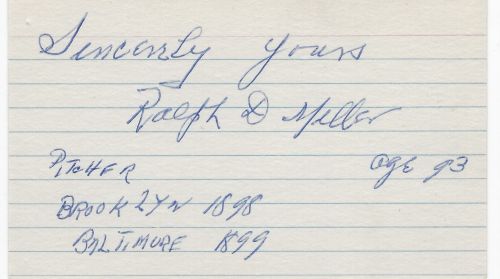 Sincerely Yours
Ralph D Miller
PITCHER age 93
BROOKLYN 1898
BALTIMORE 1899